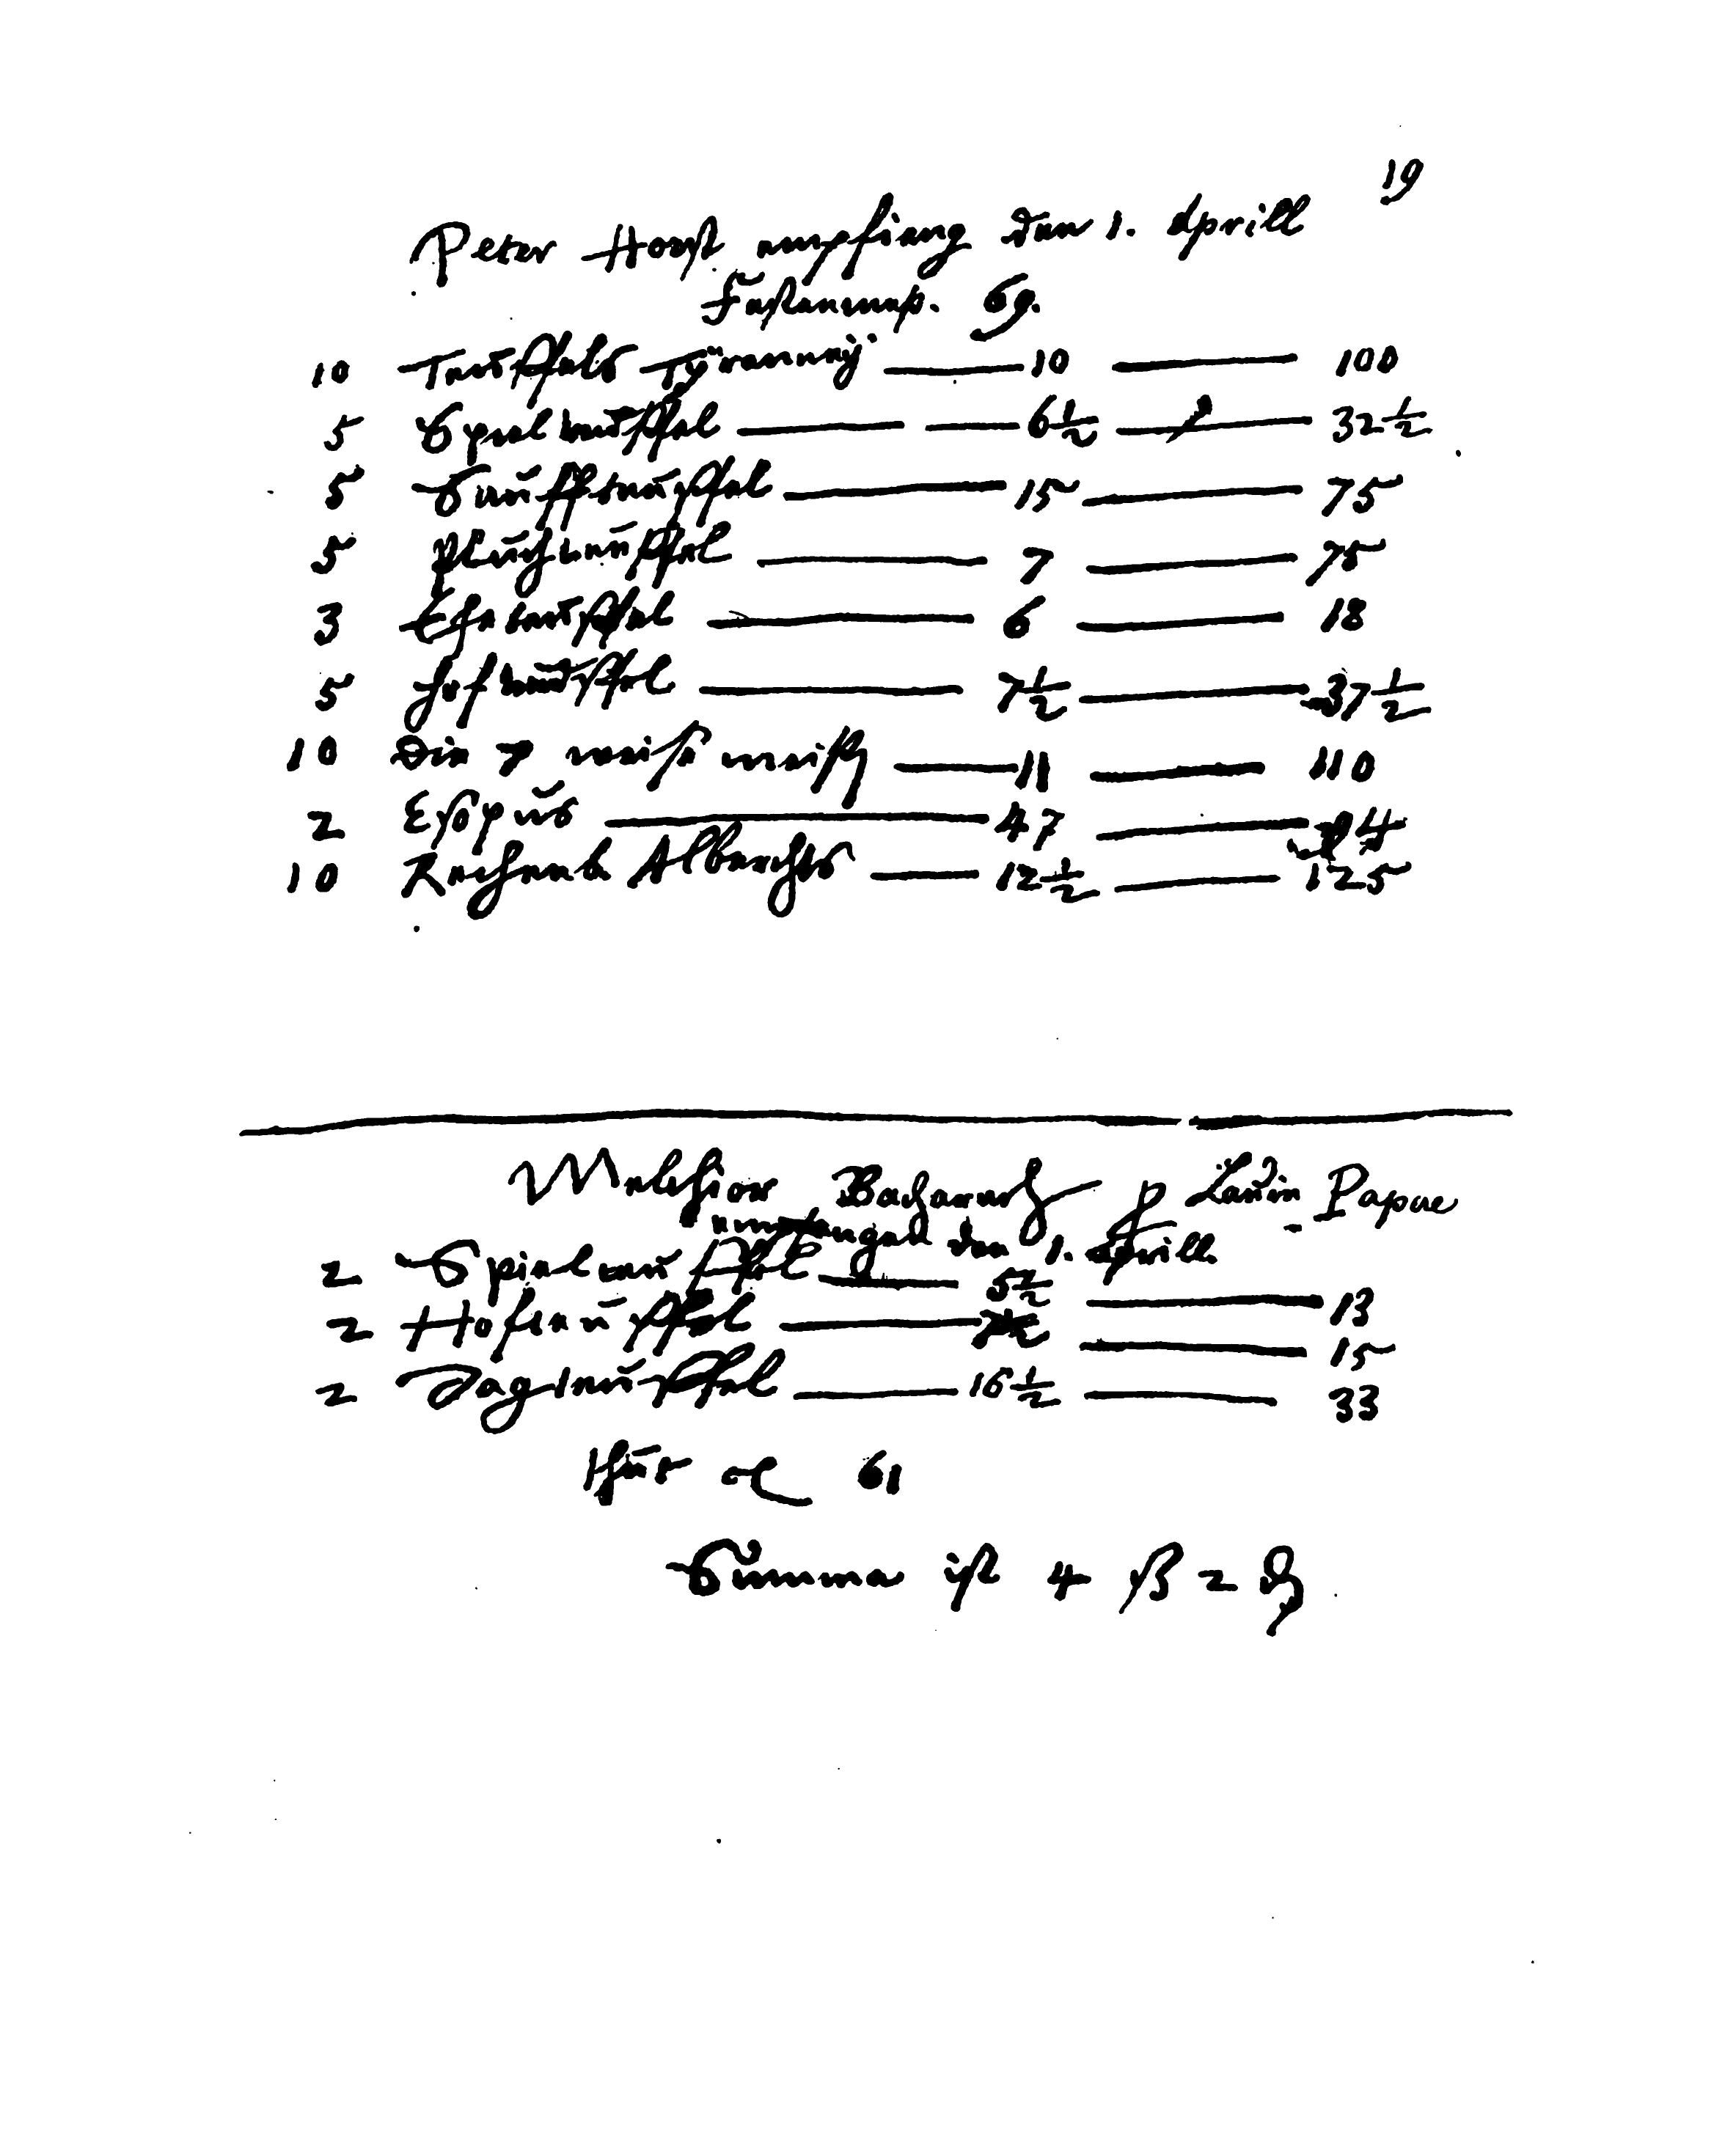 19
Peter Horst empfieng den 1. Aprill
Fastenmeß. 69.
10 Teuffels Tyranney 10 100
5 Spielteuffel 6½ 32½
5 Sauffteuffel 15 75
5 Fluchteuffel 7 75
3 Eheteuffel 6 18
5 Hofteuffel 7½ 37½
10 Die 7 weise meister 11 110
2 Esopus 47 94
10 Rechenb. Albrechts 12½ 125
Melchior p Lauin Papae
empfangen den 1. Aprill
2 Spielteuffel 5½ 13
2 Hofteuffel 15
2 Jagteuffel 16½ 33
für 61
Summa ist 4 ß 2 ₰